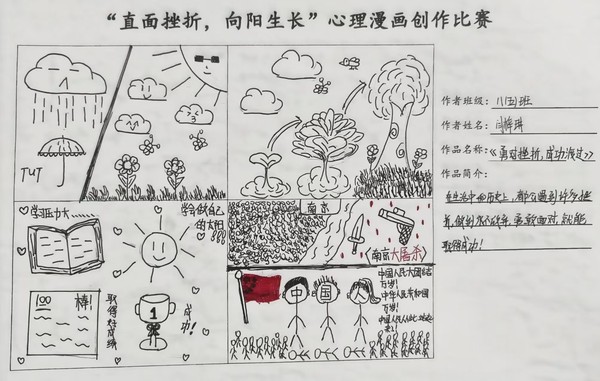 “直面挫折，向阳生长”心理漫画创作比赛
TUT
作者班级：
作者姓名：
作品名称：《勇对挫折，成功
作品简介：
在生活中和历史上，都会遇到许多挫
折，做到永不放弃，勇敢面对，就能
取得成功！
学习压力大……
学会做自己
的太阳
100 棒！
取得好成绩
1
成功！
南京
《南京大屠杀》
中国
中国人民大团结
万岁！
中华人民共和国
万岁！
中国人民